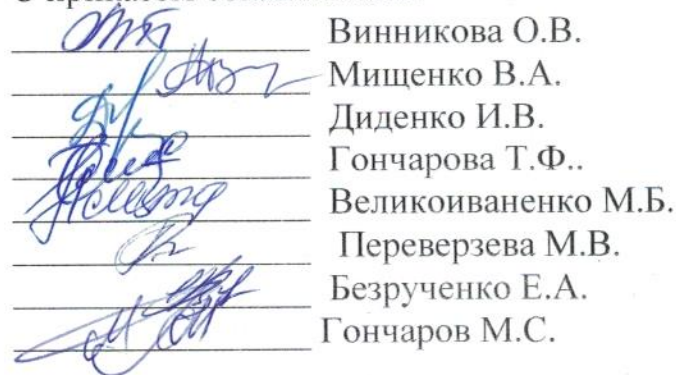 Винникова О.В.
Мищенко В.А.
Диденко И.В.
Гончарова Т.Ф..
Великоиваненко М.Б.
Переверзева М.В.
Безрученко Е.А.
Гончаров М.С.